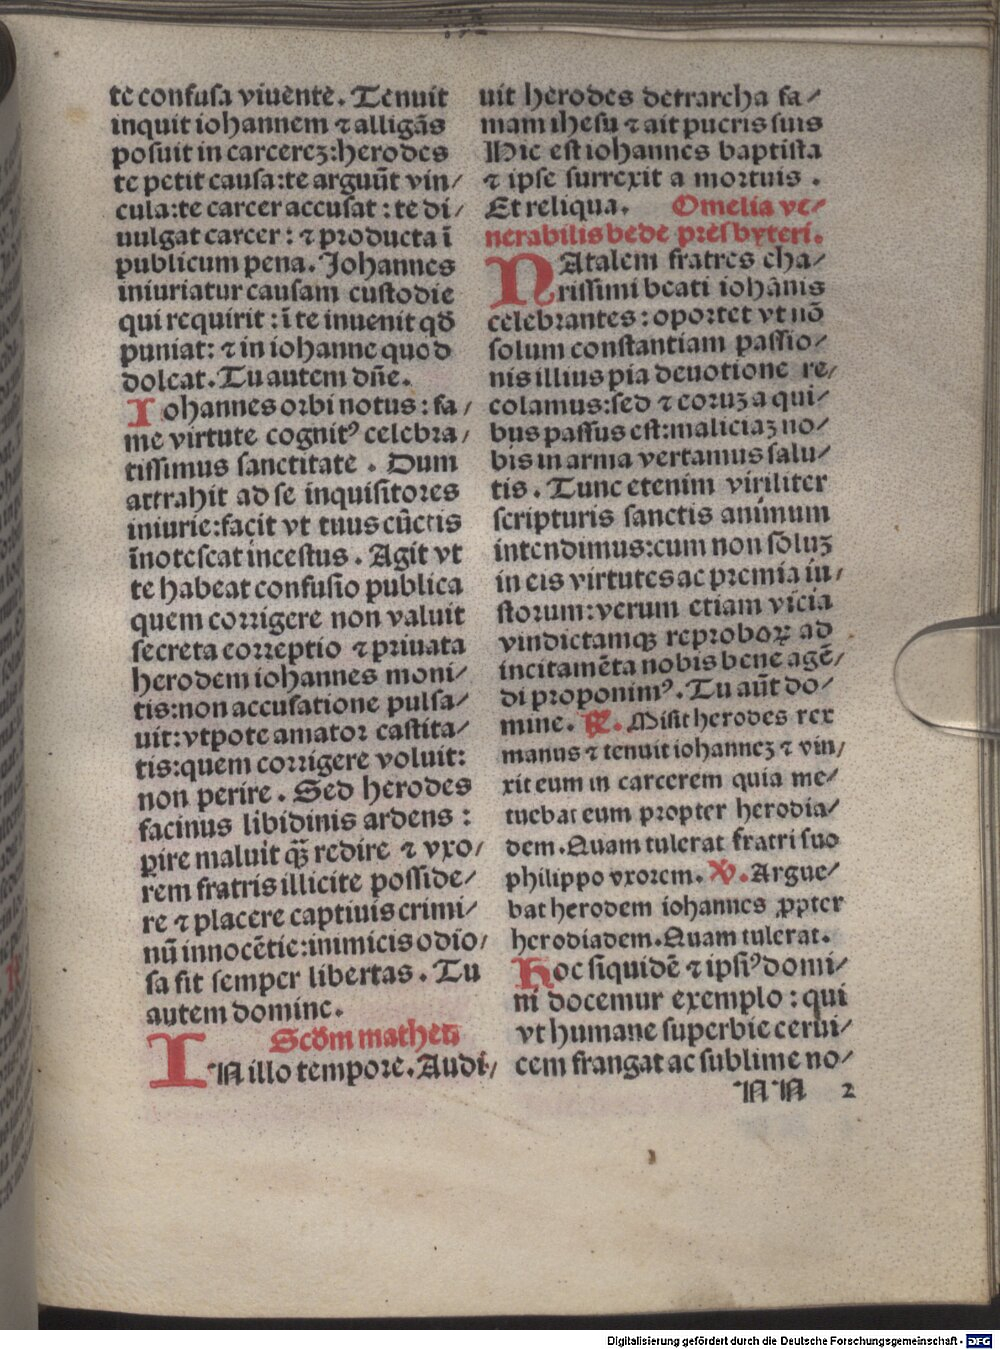 te confusa viuente. Tenuit
inquit iohannem ⁊ alligãs
posuit in carcereꝫ:herodes
te petit causa:te arguũt vin/
cula:te carcer accusat : te di/
uulgat carcer : ⁊ producta ĩ
publicum pena. Johannes
iniuriatur causam custodie
qui requirit : ĩ te inuenit qđ
puniat: ⁊ in iohanne quod
doleat. Tu autem dñe.
Iohannes orbi notus : fa/
me virtute cognitꝰ celebra/
tissimus sanctitate . Dum
attrahit ad se inquisitores
iniurie:facit vt tuus cũctis
ĩnotescat incestus . Agit vt
te habeat confusio publica
quem corrigere non valuit
secreta correptio ⁊ priuata
herodem iohannes moni/
tis:non accusatione pulsa/
uit:vtpote amator castita/
tis:quem corrigere voluit:
non perire . Sed herodes
facinus libidinis ardens :
ꝑire maluit q̃ꝫ redire ⁊ vxo/
rem fratris illicite posside/
re ⁊ placere captiuis crimi/
nũ innocẽtie:inimicis odio/
sa fit semper libertas . Tu
autem domine.
Scđm matheũ
IN illo tempore. Audi/
uit herodes detrarcha fa/
mam ihesu ⁊ ait pueris suis
Hic est iohannes baptista
⁊ ipse surrexit a mortuis .
Et reliqua. Omelia ve/
nerabilis bede presbyteri.
NAtalem fratres cha/
rissimi beati iohãnis
celebrantes : oportet vt nõ
solum constantiam passio/
nis illius pia deuotione re/
colamus:sed ⁊ eoruꝫ a qui/
bus passus est:maliciaꝫ no/
bis in arma vertamus salu/
tis . Tunc etenim viriliter
scripturis sanctis animum
intendimus:cum non soluꝫ
in eis virtutes ac premia iu/
storum:verum etiam vicia
vindictamqꝫ reproboꝝ ad
incitamẽta nobis bene agẽ/
di proponimꝰ. Tu aũt do/
mine. ℟. Misit herodes rex
manus ⁊ tenuit iohanneꝫ ⁊ vin/
xit eum in carcerem quia me/
tuebat eum propter herodia/
dem. Quam tulerat fratri suo
philippo vxorem. ℣. Argue/
bat herodem iohannes ꝓpter
herodiadem. Quam tulerat.
Hoc siquidẽ ⁊ ipsiꝰ domi/
ni docemur exemplo : qui
vt humane superbie cerui/
cem frangat ac sublime no/
NN 2
Digitalisierung gefördert durch die Deutsche Forschungsgemeinschaft - DFG